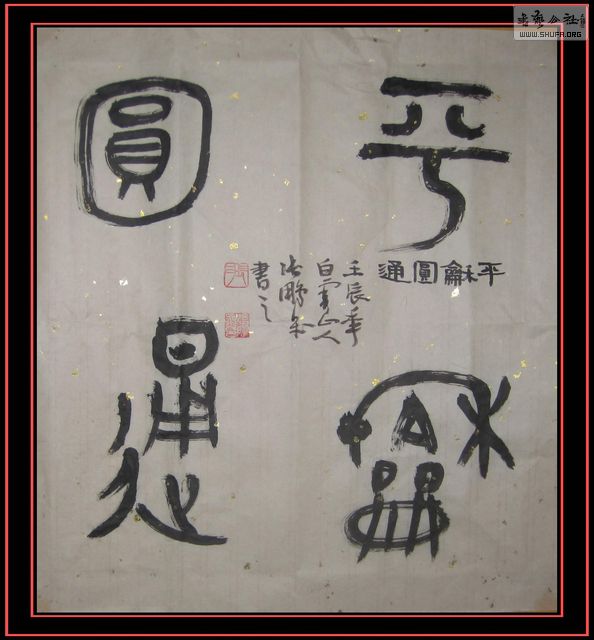 書藝公社
WWW.SHUFA.ORG
平龢
圓通
平龢圓通
壬辰年
白雲山人
張鵬
書之